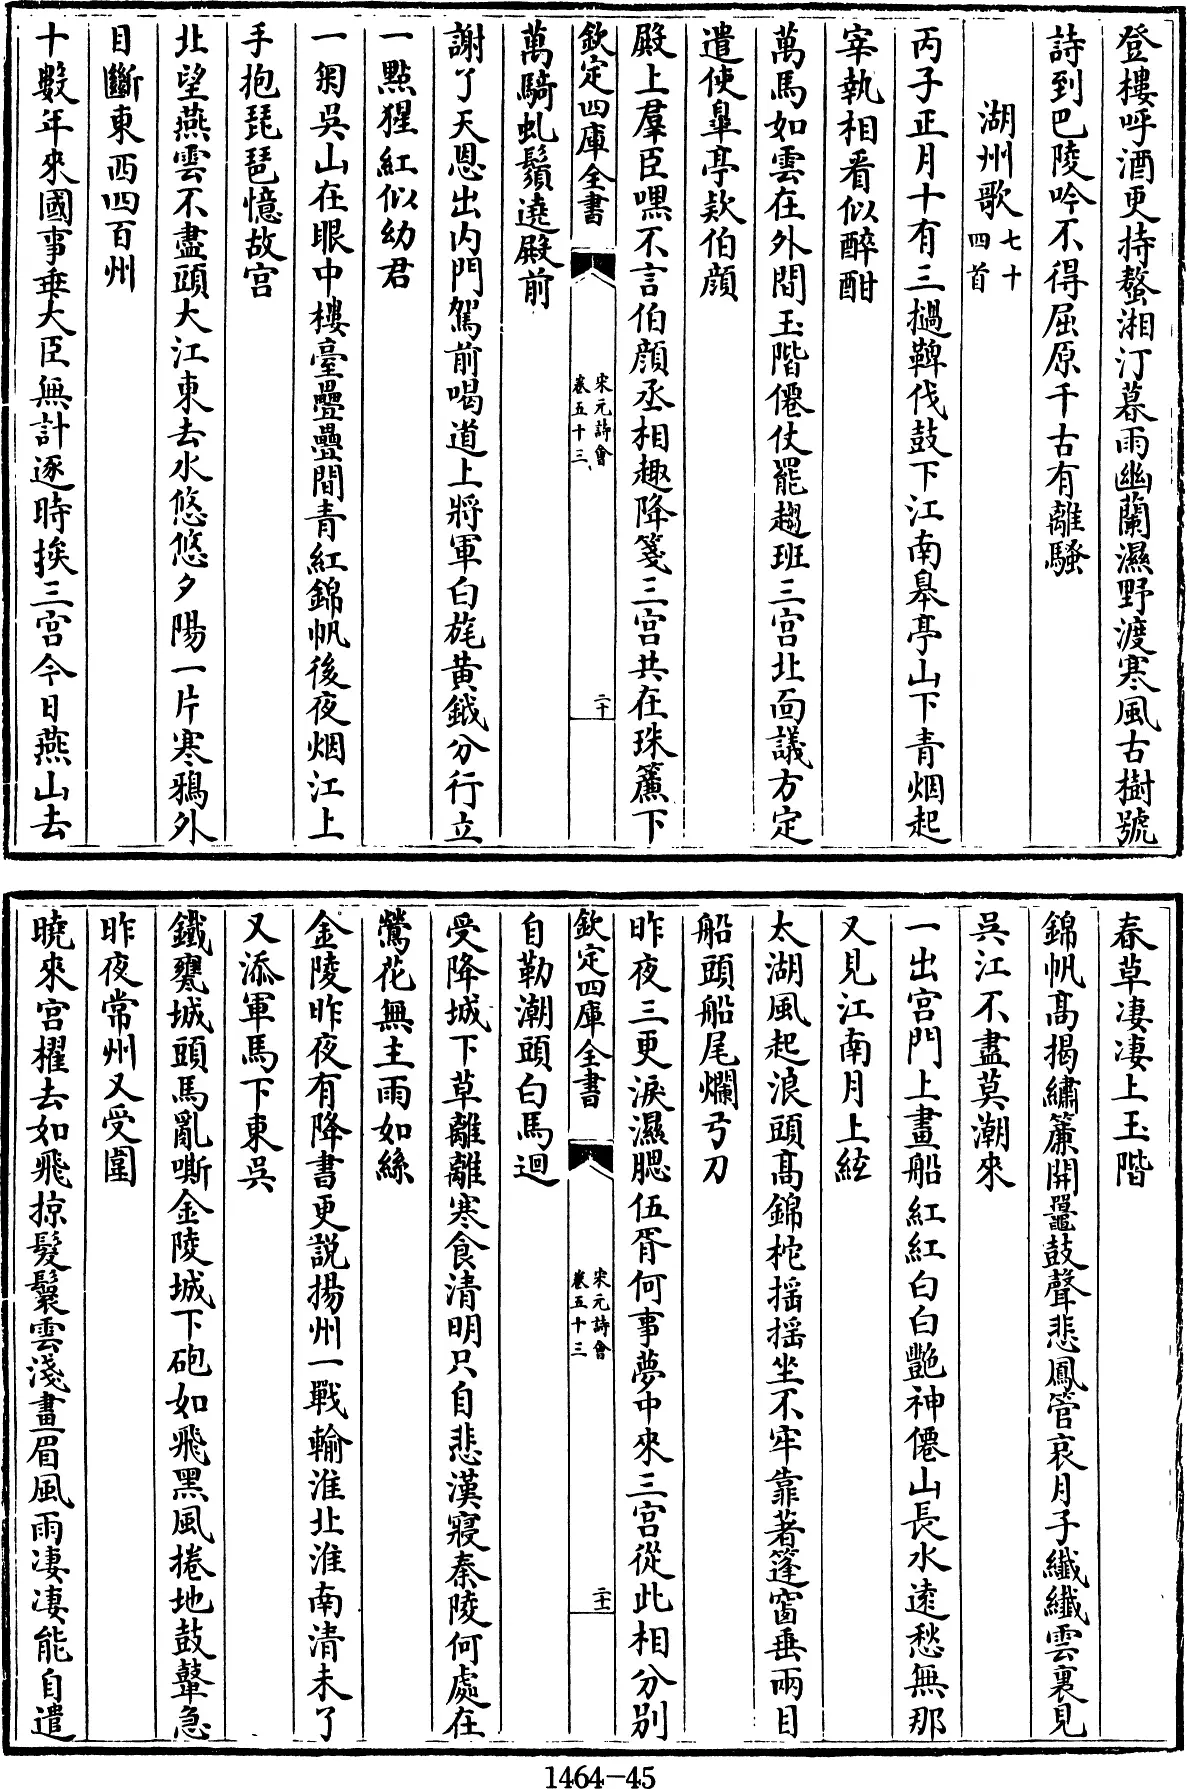 登樓呼酒更持螯湘汀暮雨幽蘭濕野渡寒風古樹號
詩到巴陵吟不得屈原千古有離騷
湖州歌七十四首
丙子正月十有三撾鞞伐鼓下江南臯亭山下青烟起
宰執相看似醉酣
萬馬如雲在外間玉階僊仗罷趨班三宮北面議方定
遣使臯亭欵伯顏
殿上羣臣嘿不言伯顏丞相趣降箋三宮共在珠簾下
欽定四庫全書
宋元詩會
卷五十三
二十
萬騎虬鬚遶殿前
謝了天恩出內門駕前喝道上將軍白旄黃鉞分行立
一點猩紅似幼君
一匊吳山在眼中樓臺疊疊間青紅錦帆後夜烟江上
手抱琵琶憶故宮
北望燕雲不盡頭大江東去水悠悠夕陽一片寒鴉外
目斷東西四百州
十數年來國事乖大臣無計逐時挨三宮今日燕山去
春草凄凄上玉階
錦帆髙揭繡簾開鼉鼓聲悲鳳管哀月子纖纖雲裏見
吳江不盡莫潮來
一出宮門上畫船紅紅白白艷神僊山長水遠愁無那
又見江南月上絃
太湖風起浪頭髙錦柁揺揺坐不牢靠著篷窗垂兩目
船頭船尾爛弓刀
昨夜三更淚濕腮伍胥何事夢中來三宮從此相分別
欽定四庫全書
宋元詩會
卷五十三
二十一
自勒潮頭白馬迴
受降城下草離離寒食清明只自悲漢寢秦陵何處在
鶯花無主雨如絲
金陵昨夜有降書更說揚州一戰輸淮北淮南清未了
又添軍馬下東吳
鐵甕城頭馬亂嘶金陵城下砲如飛黑風捲地鼓鼙急
昨夜常州又受圍
曉來宮櫂去如飛掠髮鬟雲淺畫眉風雨凄凄能自遣
1464-45